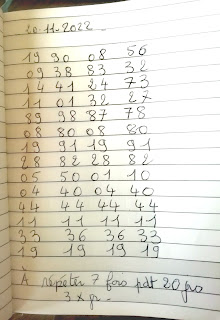 20-11-2022
19 90 08 56
09 38 83 32
14 41 24 73
11 01 32 27
89 98 87 78
08 80 08 80
19 91 19 91
28 82 28 82
05 50 01 10
04 40 04 40
44 44 44 44
11 11 11 11
33 36 36 33
19 19 19 19
À répéter 7 fois pdt 20
3 x